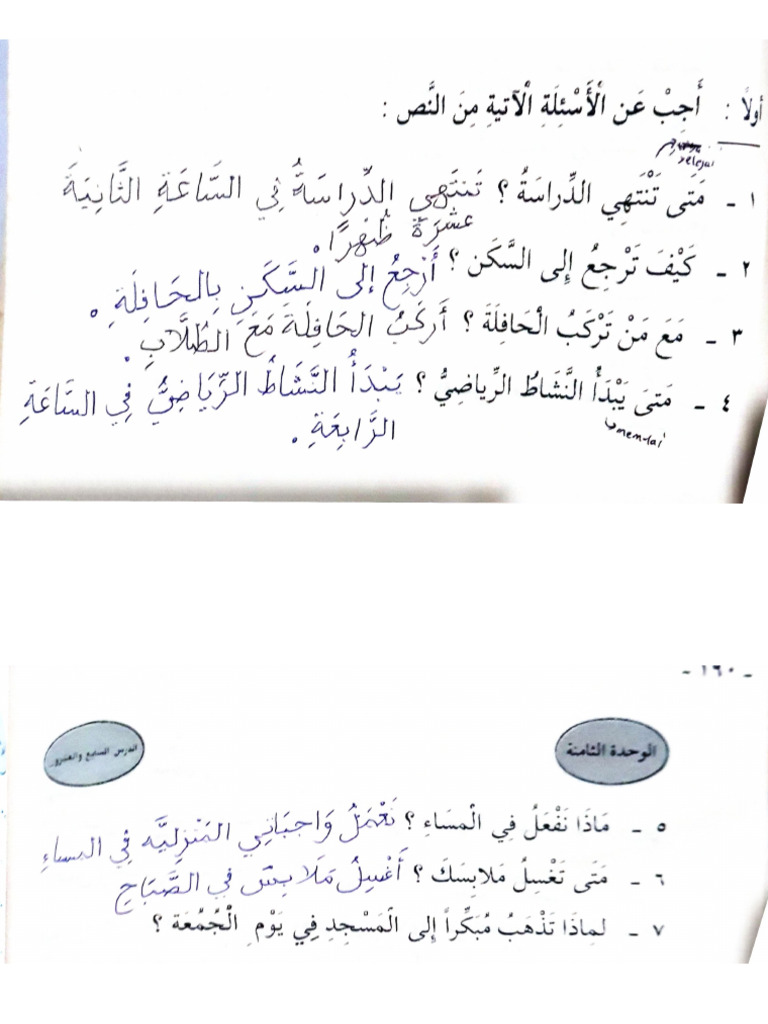 أولاً : أَجِبْ عَن الْأَسْئِلَةِ الْآتيةِ مِنَ النَّص :
١ - مَتى تَنْتَهِي الدِّراسَةُ ؟ تَنتَهِي الدِّرَاسَةُ فِي السَّاعَةِ الثَّانِيَةَ
عَشْرَةَ ظُهْرًا.
٢ - كَيْفَ تَرْجِعُ إِلى السَّكَن ؟ أَرْجِعُ إلى السَّكَنِ بِالحَافِلَةِ .
٣ - مَعَ مَنْ تَرْكَبُ الْحَافِلَةَ ؟ أَركَبُ الحَافِلَةَ مَعَ الطُلَّابِ .
٤ - مَتىَ يَبْدَأُ النَّشَاطُ الرِّياضِيُّ ؟ يَبْدَأُ النَّشَاطُ الرِّيَاضِيُّ فِي السَّاعَةِ
الرَّابِعَةِ .
- ١٦٠ -
الوحدة الثامنة
الدرس السابع والعشرون
٥ - مَاذَا نَفْعَلُ فِي الْمسَاءِ ؟ نَعْمَلُ وَاجبَاتِي المَنْزِلِيَّه فِي المساءِ
٦ - مَتَى تَغْسِلُ مَلابِسَكَ ؟ أَغْسِلُ مَلَابِسَ في الصَّبَاحِ
٧ - لماذَا تَذْهَبُ مُبَكِّراً إلى الْمَسْجِدِ فِي يَوْمِ الْجُمُعَة ؟